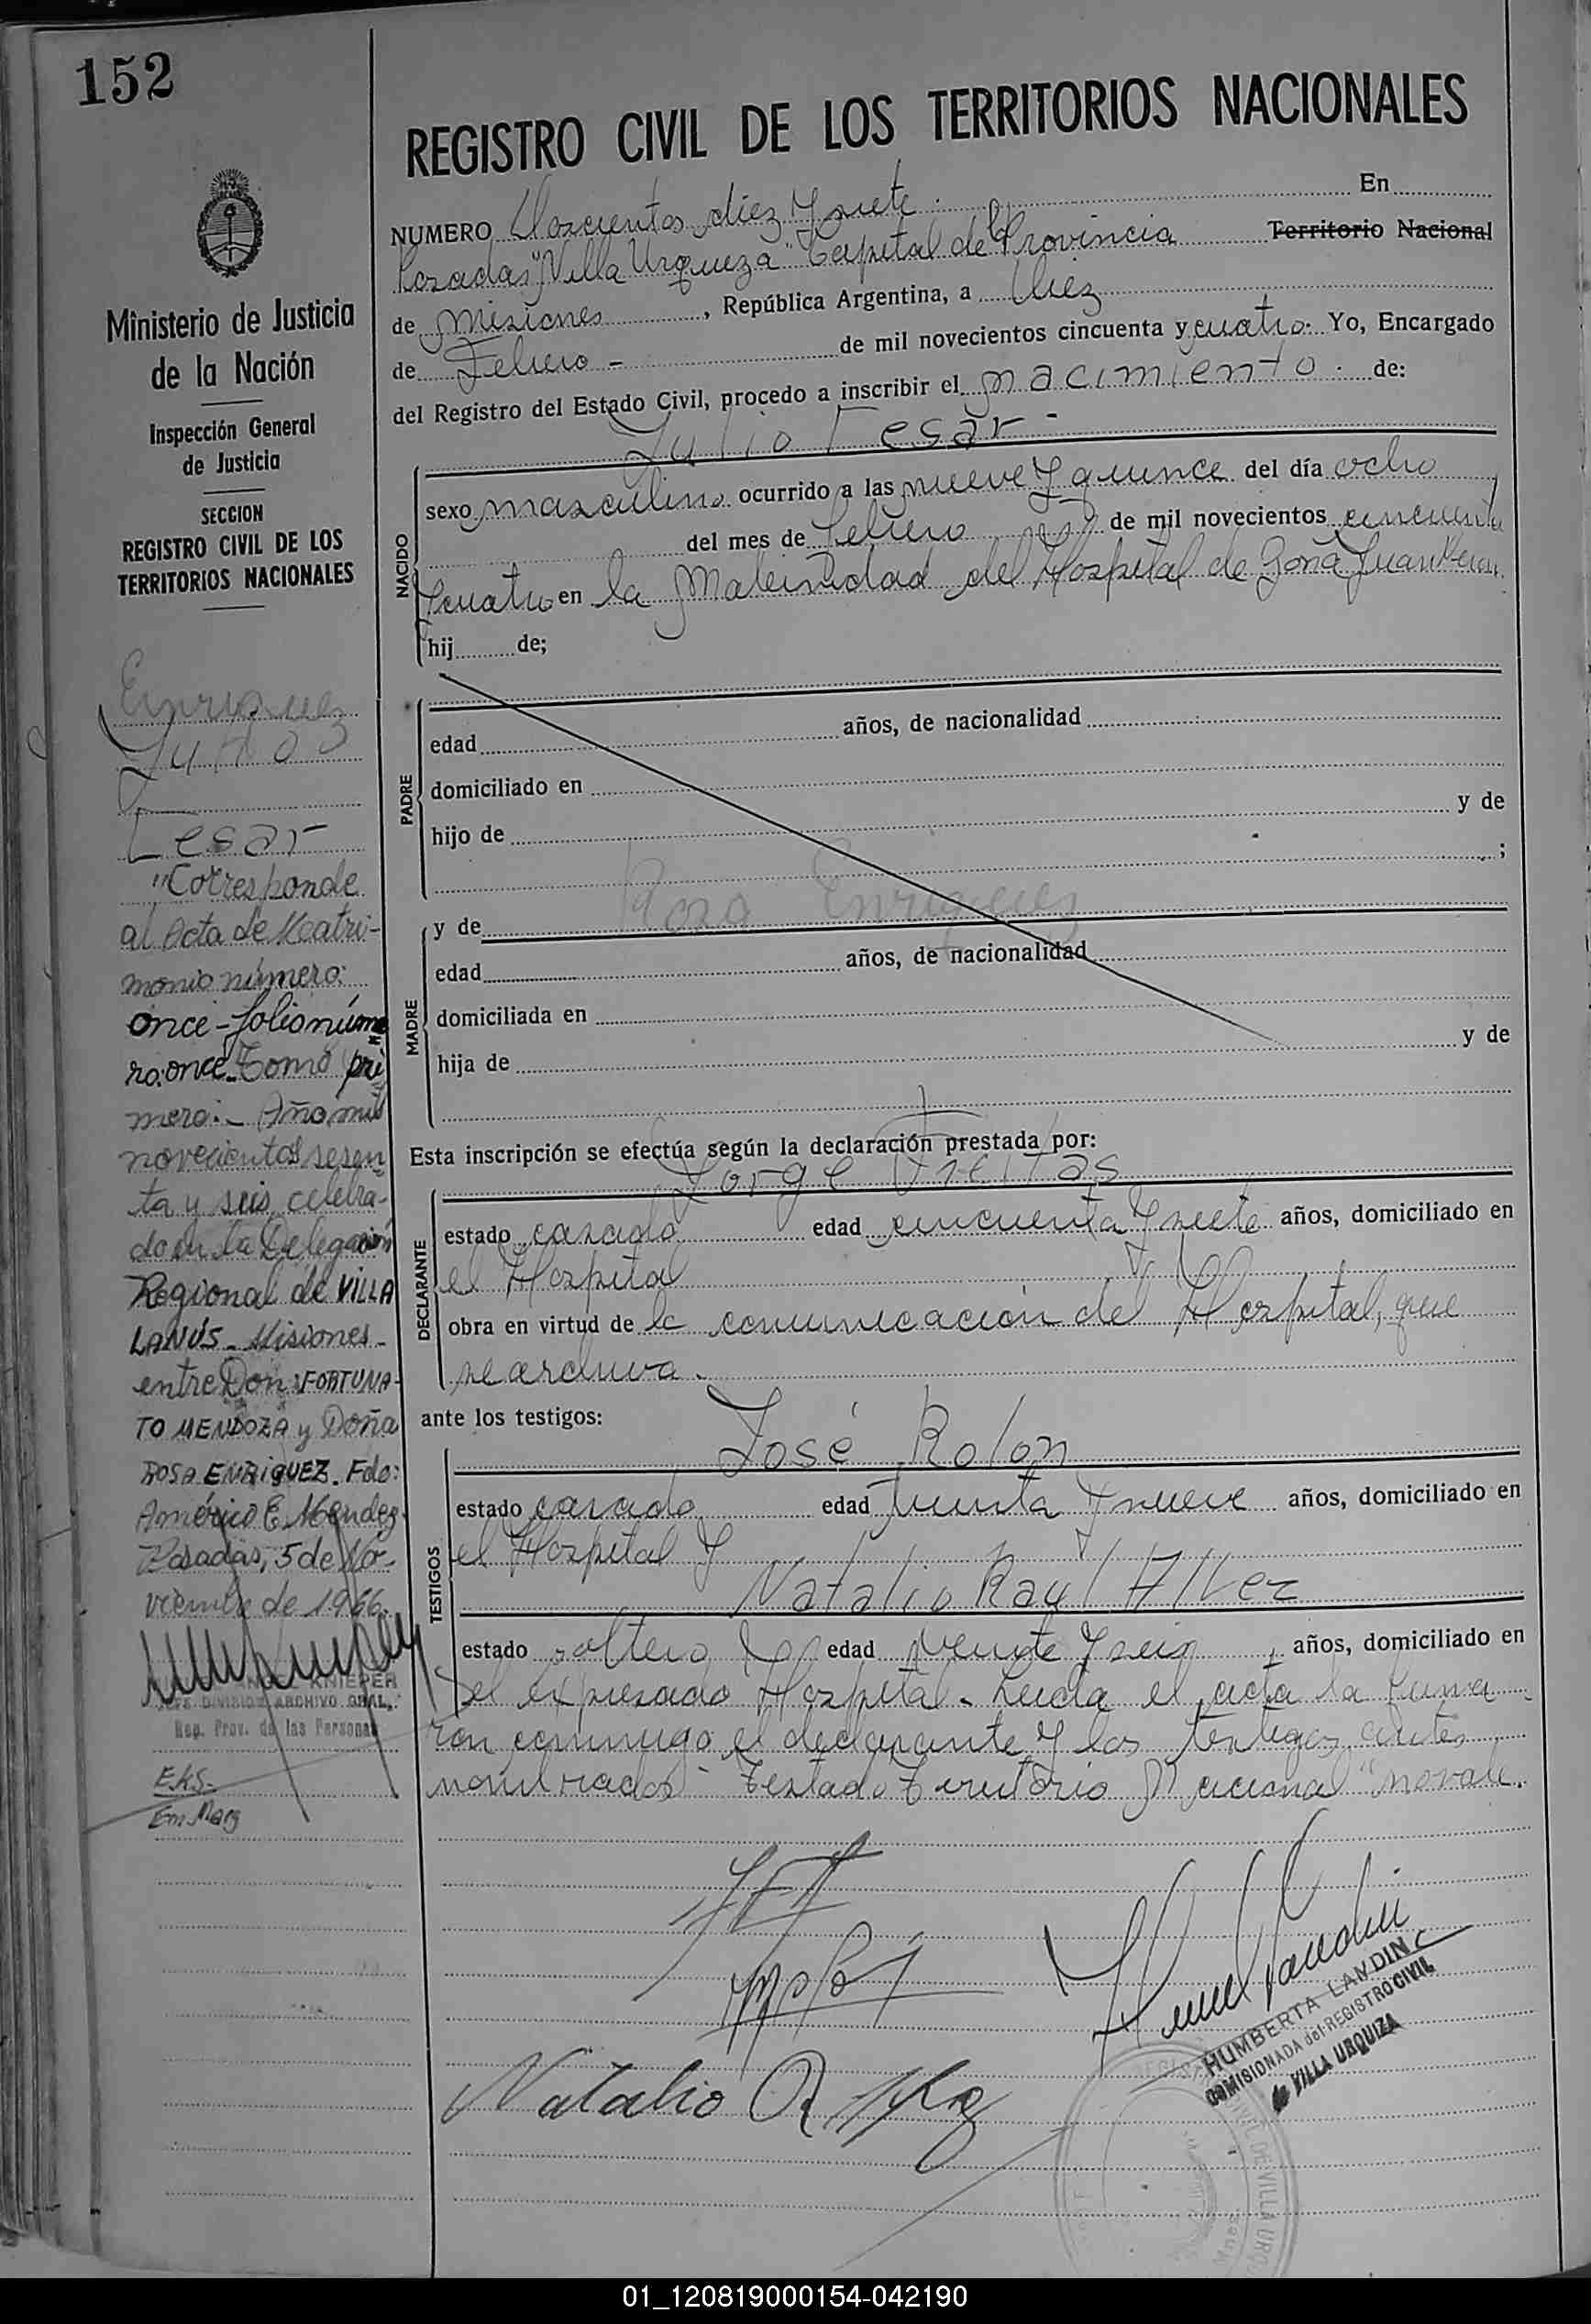 152
Ministerio de Justicia
de la Nación
Inspección General
de Justicia
SECCION
REGISTRO CIVIL DE LOS
TERRITORIOS NACIONALES
Enriquez
Julio
Cesar
"Corresponde
al Acta de Matri-
monio número:
once-folio núme
ro: once. Tomo pri
mero:- Año mil
novecientos sesen
ta y seis, celebra-
do en la Delegación
Regional de VILLA
LANÚS - Misiones -
entre Don: FORTUNA-
TO MENDOZA y Doña
ROSA ENRIQUEZ. Fdo:
Américo E. Mendez.
Posadas, 5 de No-
viembre de 1966.
KNIEPER
JEFE DIVISION ARCHIVO GRAL.
Reg. Prov. de las Personas
E.K.S.-
REGISTRO CIVIL DE LOS TERRITORIOS NACIONALES
NUMERO Doscientos diez y siete. En
Posadas, "Villa Urquiza" Capital de la Provincia Territorio Nacional
de Misiones, República Argentina, a diez
de Febrero - de mil novecientos cincuenta y cuatro. Yo, Encargado
del Registro del Estado Civil, procedo a inscribir el nacimiento. de:
Julio Cesar -
NACIDO
sexo masculino ocurrido a las nueve y quince del día ocho
del mes de febrero de mil novecientos cincuenta
y cuatro en la Maternidad del Hospital de Doña Juan Peron
hij de;
PADRE
edad años, de nacionalidad
domiciliado en
hijo de y de
;
MADRE
y de Rosa Enriquez
edad años, de nacionalidad
domiciliada en
hija de y de
Esta inscripción se efectúa según la declaración prestada por:
Jorge Freitas
DECLARANTE
estado casado edad cincuenta y siete años, domiciliado en
el Hospital
obra en virtud de la comunicación del Hospital, que
se archiva.
ante los testigos:
José Rolon
TESTIGOS
estado casado edad treinta y nueve años, domiciliado en
el Hospital y
Natalio Raul Alvez
estado soltero edad veinte y seis, años, domiciliado en
el expresado Hospital. Leida el acta la firma
ron conmigo el declarante y los testigos antes
nombrados - Testado Territorio Nacional "no vale.
Natalio R.
HUMBERTA LANDIN
COMISIONADA del REGISTRO CIVIL
de VILLA URQUIZA
01_120819000154-042190